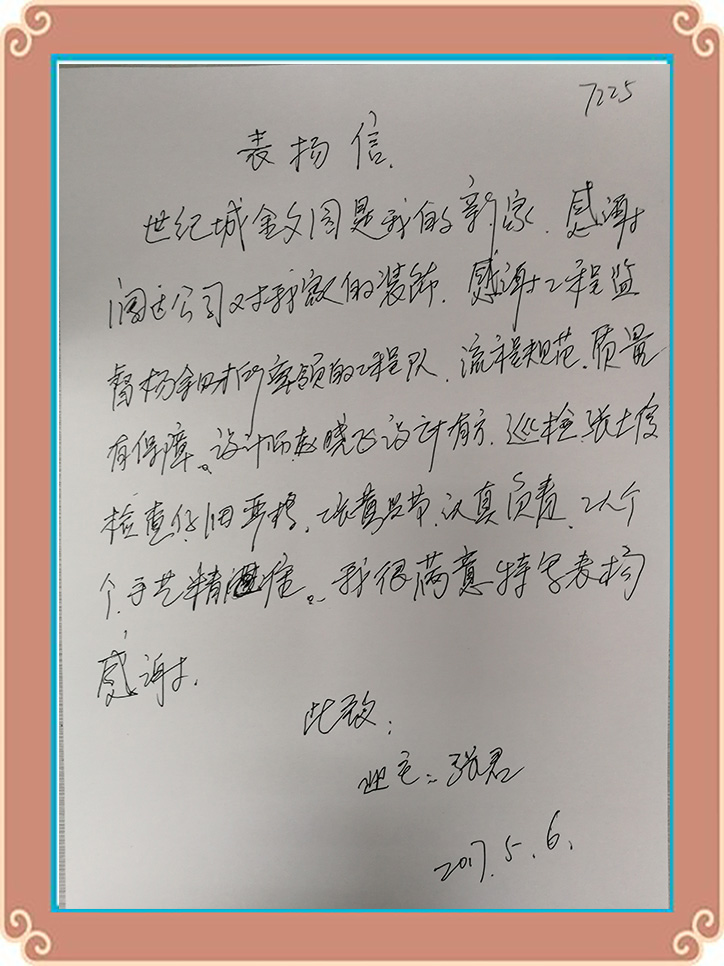 7225
表扬信.
世纪城金文园是我的新家.感谢
阔达公司对我家的装饰.感谢工程监
督杨 所率领的工程队.流程规范.质量
有保障。设计师赵晓飞设计有方.巡检张士俊
检查仔细严格. 认真负责.工人个
个手艺精准。我很满意特写表扬
感谢.
此致:
业主:张君
2017.5.6.